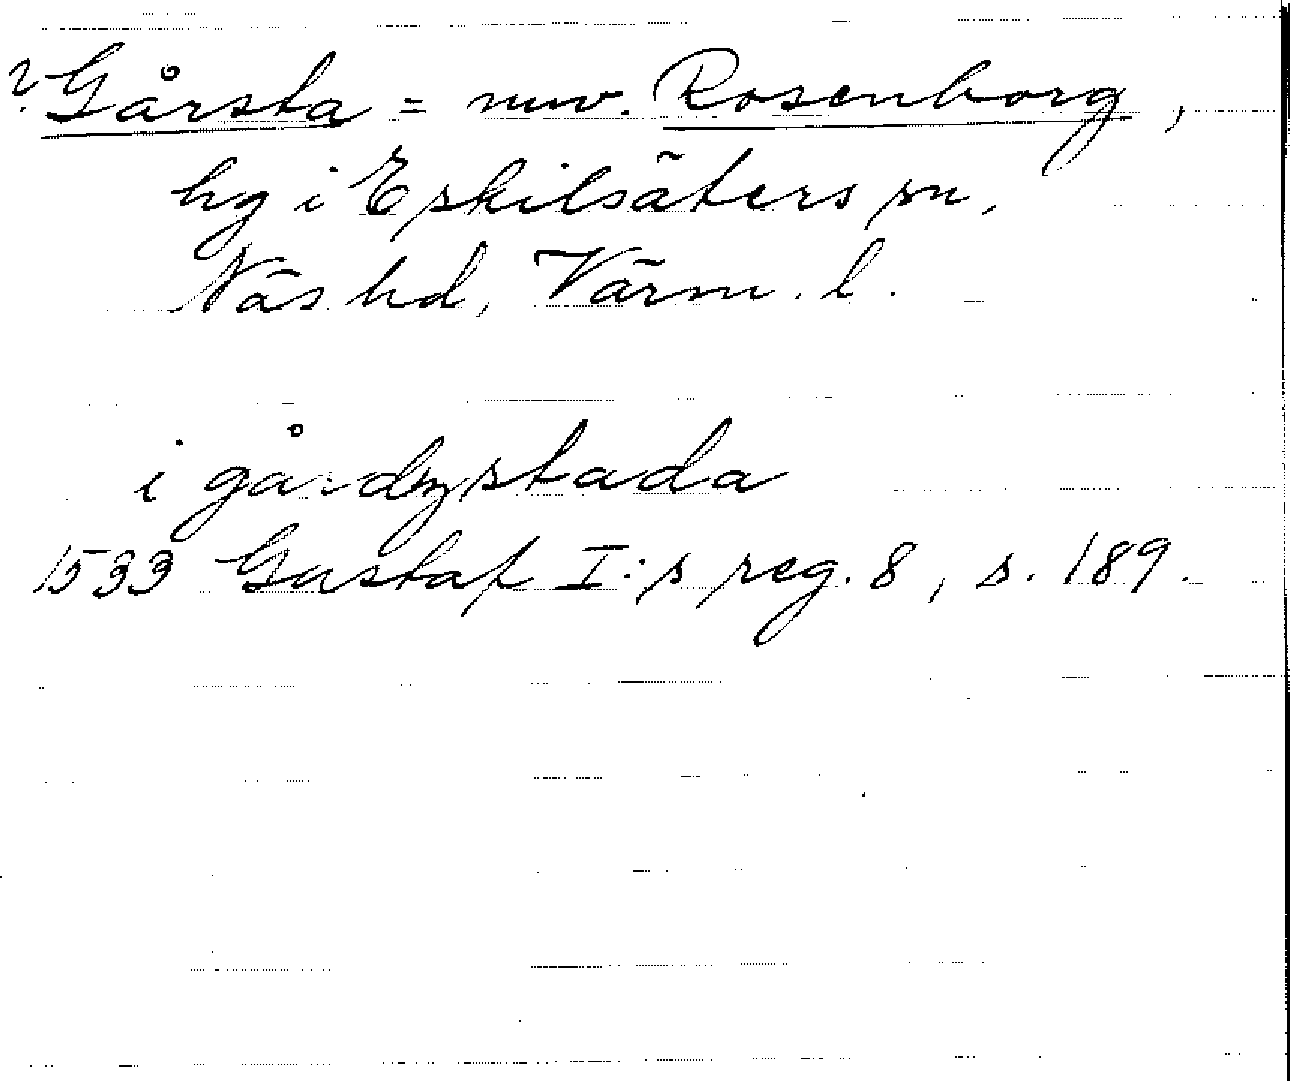 ? Gårsta = nuv. Rosenborg,
hg i Eskilsäters sn,
Näs hd, Värm. l.
i gårdzstada
1533 Gustaf I:s reg. 8, s. 189.